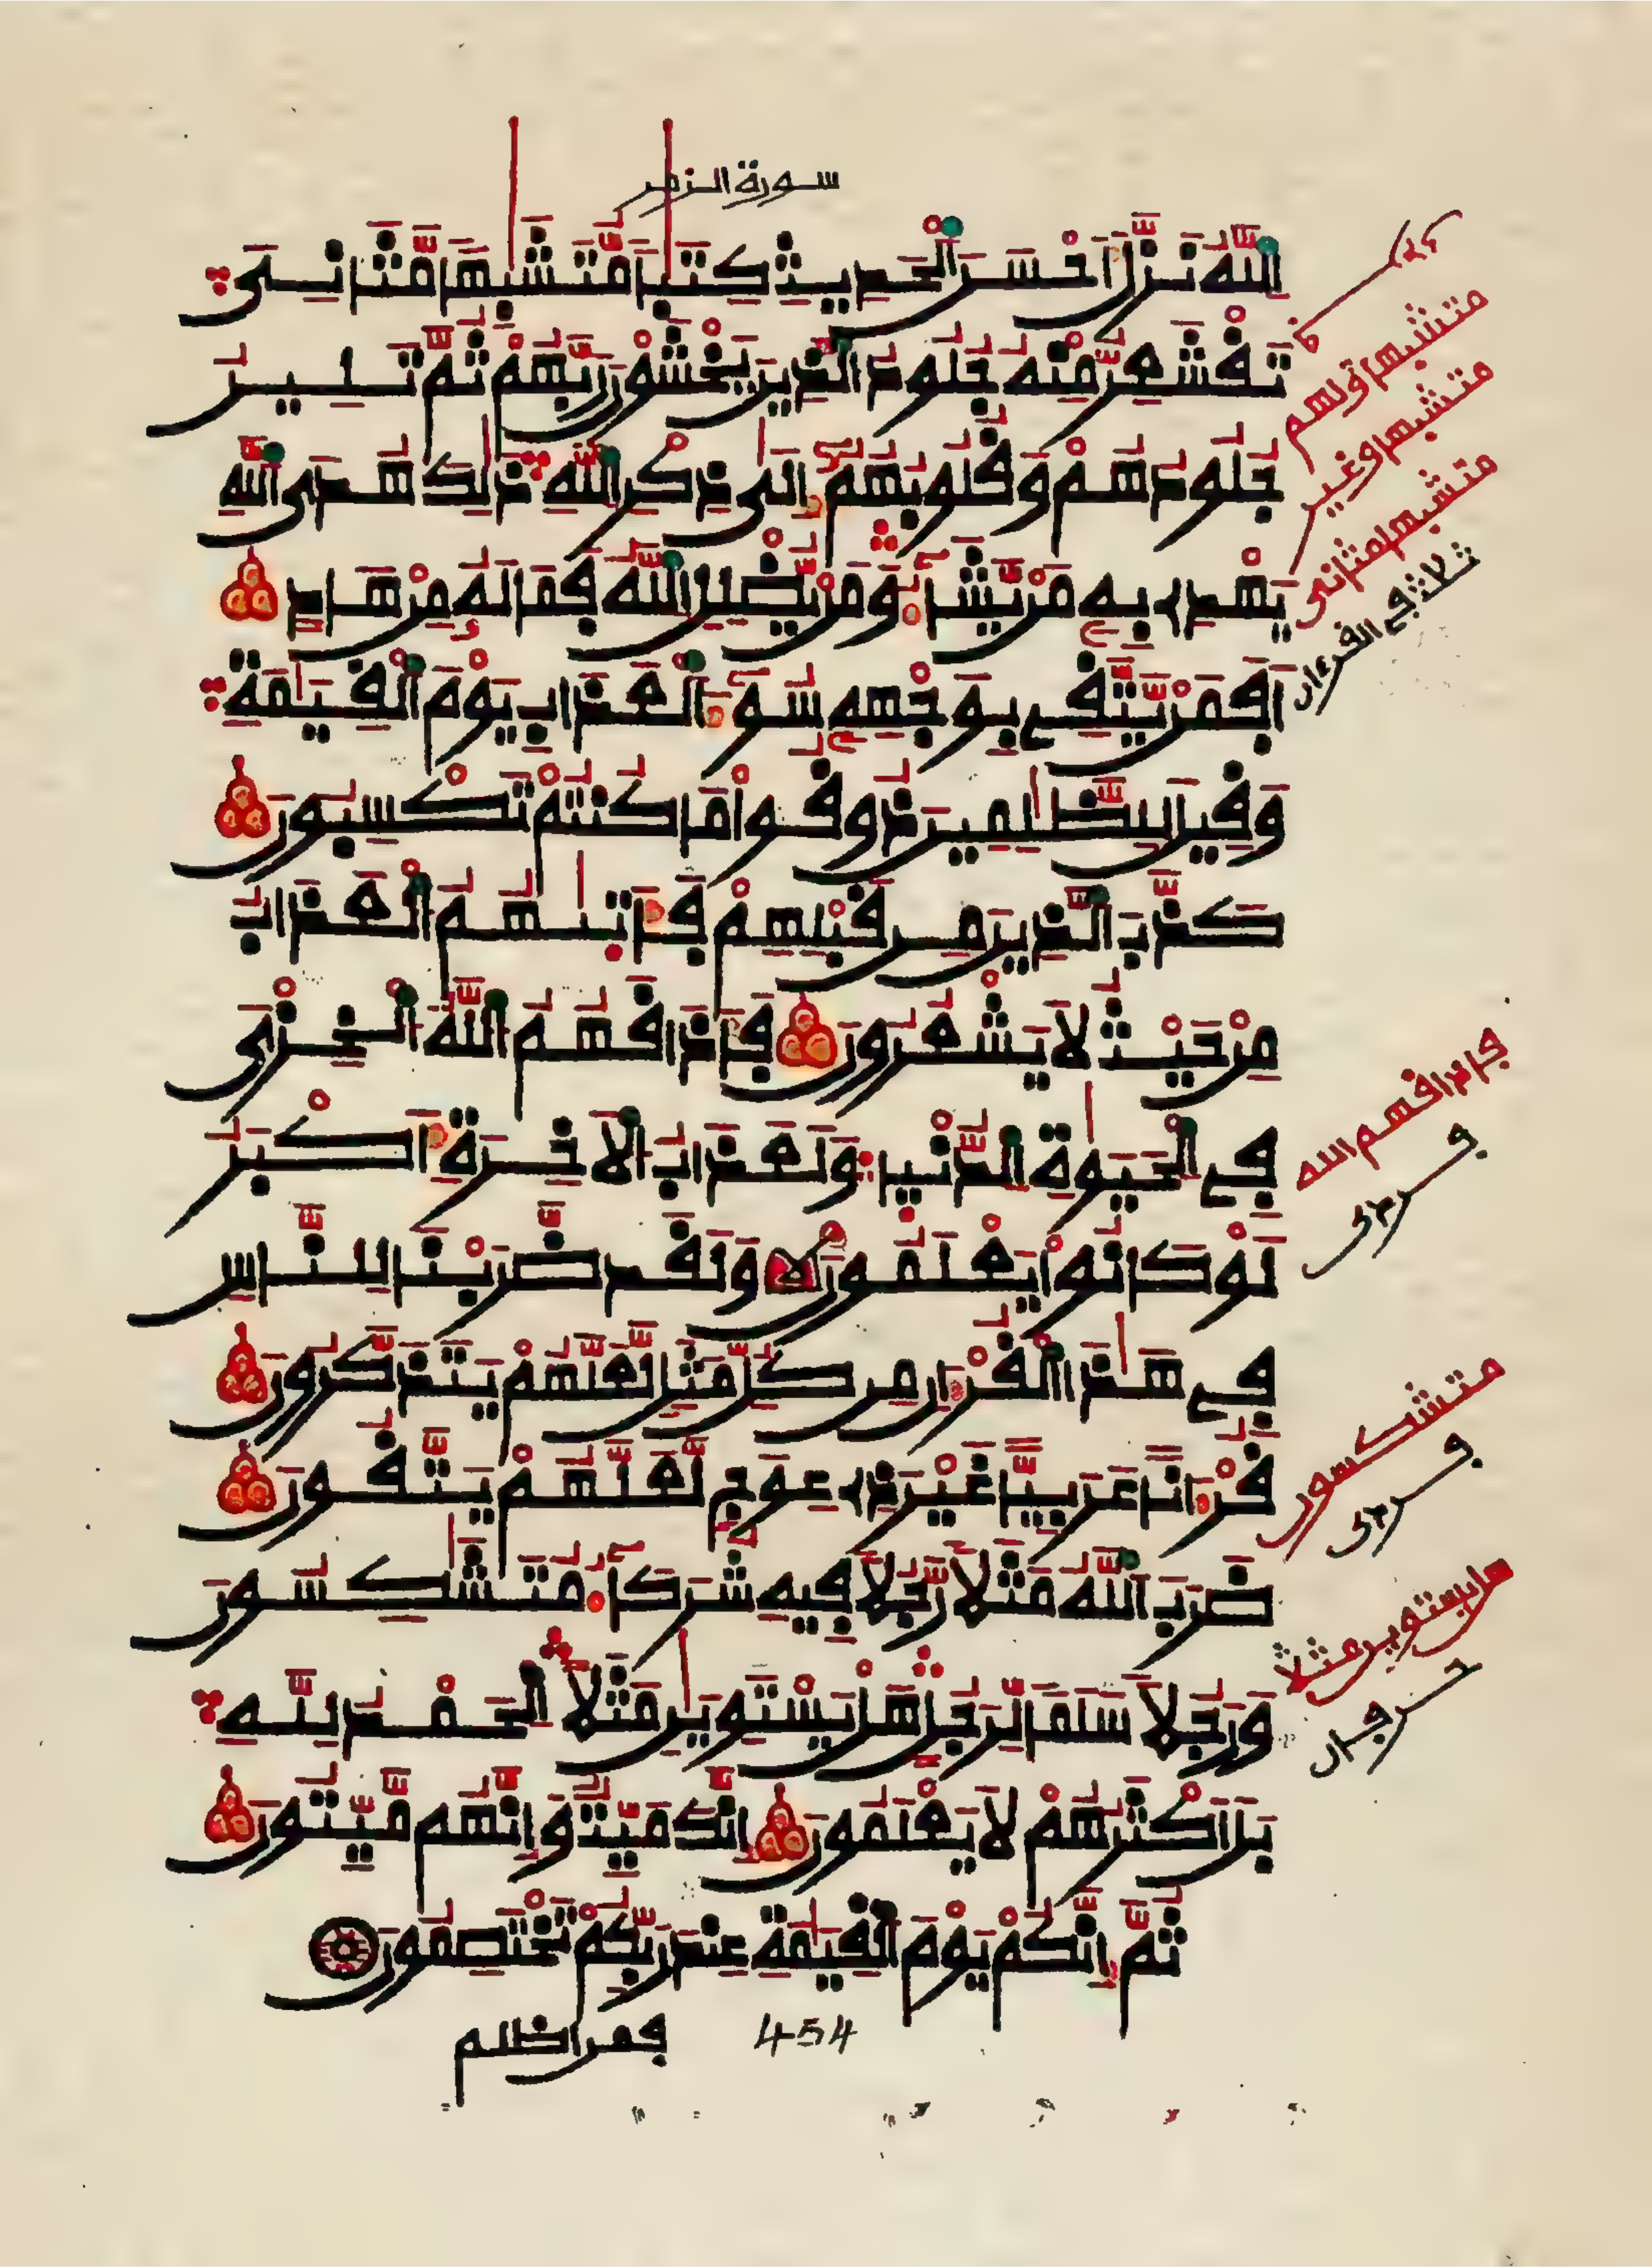 سورة الزمر
اللَّهُ نَزَّلَ أَحْسَنَ الْحَدِيثِ كِتَٰبًا مُّتَشَٰبِهًا مَّثَانِيَ
تَقْشَعِرُّ مِنْهُ جُلُودُ الَّذِينَ يَخْشَوْنَ رَبَّهُمْ ثُمَّ تَلِينُ
جُلُودُهُمْ وَقُلُوبُهُمْ إِلَىٰ ذِكْرِ اللَّهِ ذَٰلِكَ هُدَى اللَّهِ
يَهْدِي بِهِ مَنْ يَّشَآءُ وَمَنْ يُّضْلِلِ اللَّهُ فَمَا لَهُ مِنْ هَادٍ
أَفَمَنْ يَّتَّقِي بِوَجْهِهِ سُوٓءَ الْعَذَابِ يَوْمَ الْقِيَٰمَةِ
وَقِيلَ لِلظَّٰلِمِينَ ذُوقُوا مَا كُنتُمْ تَكْسِبُونَ
كَذَّبَ الَّذِينَ مِن قَبْلِهِمْ فَأَتَىٰهُمُ الْعَذَابُ
مِنْ حَيْثُ لَا يَشْعُرُونَ فَأَذَاقَهُمُ اللَّهُ الْخِزْيَ
فِي الْحَيَوٰةِ الدُّنْيَا وَلَعَذَابُ الْأَخِرَةِ أَكْبَرُ
لَوْ كَانُوا يَعْلَمُونَ وَلَقَد ضَّرَبْنَا لِلنَّاسِ
فِي هَٰذَا الْقُرْءَانِ مِن كُلِّ مَثَلٍ لَّعَلَّهُمْ يَتَذَكَّرُونَ
قُرْءَانًا عَرَبِيًّا غَيْرَ ذِي عِوَجٍ لَّعَلَّهُمْ يَتَّقُونَ
ضَرَبَ اللَّهُ مَثَلًا رَّجُلًا فِيهِ شُرَكَآءُ مُتَشَٰكِسُونَ
وَرَجُلًا سَلَمًا لِّرَجُلٍ هَلْ يَسْتَوِيَٰنِ مَثَلًا الْحَمْدُ لِلَّهِ
بَلْ أَكْثَرُهُمْ لَا يَعْلَمُونَ إِنَّكَ مَيِّتٌ وَإِنَّهُم مَّيِّتُونَ
ثُمَّ إِنَّكُمْ يَوْمَ الْقِيَٰمَةِ عِندَ رَبِّكُمْ تَخْتَصِمُونَ
فمن اظلم
454
متشبها ولهم
متشبها وغير
متشبها مثاني
ثلاثة في القرءان
فاذاقهم الله
متشكسون
هل يستوين مثلا